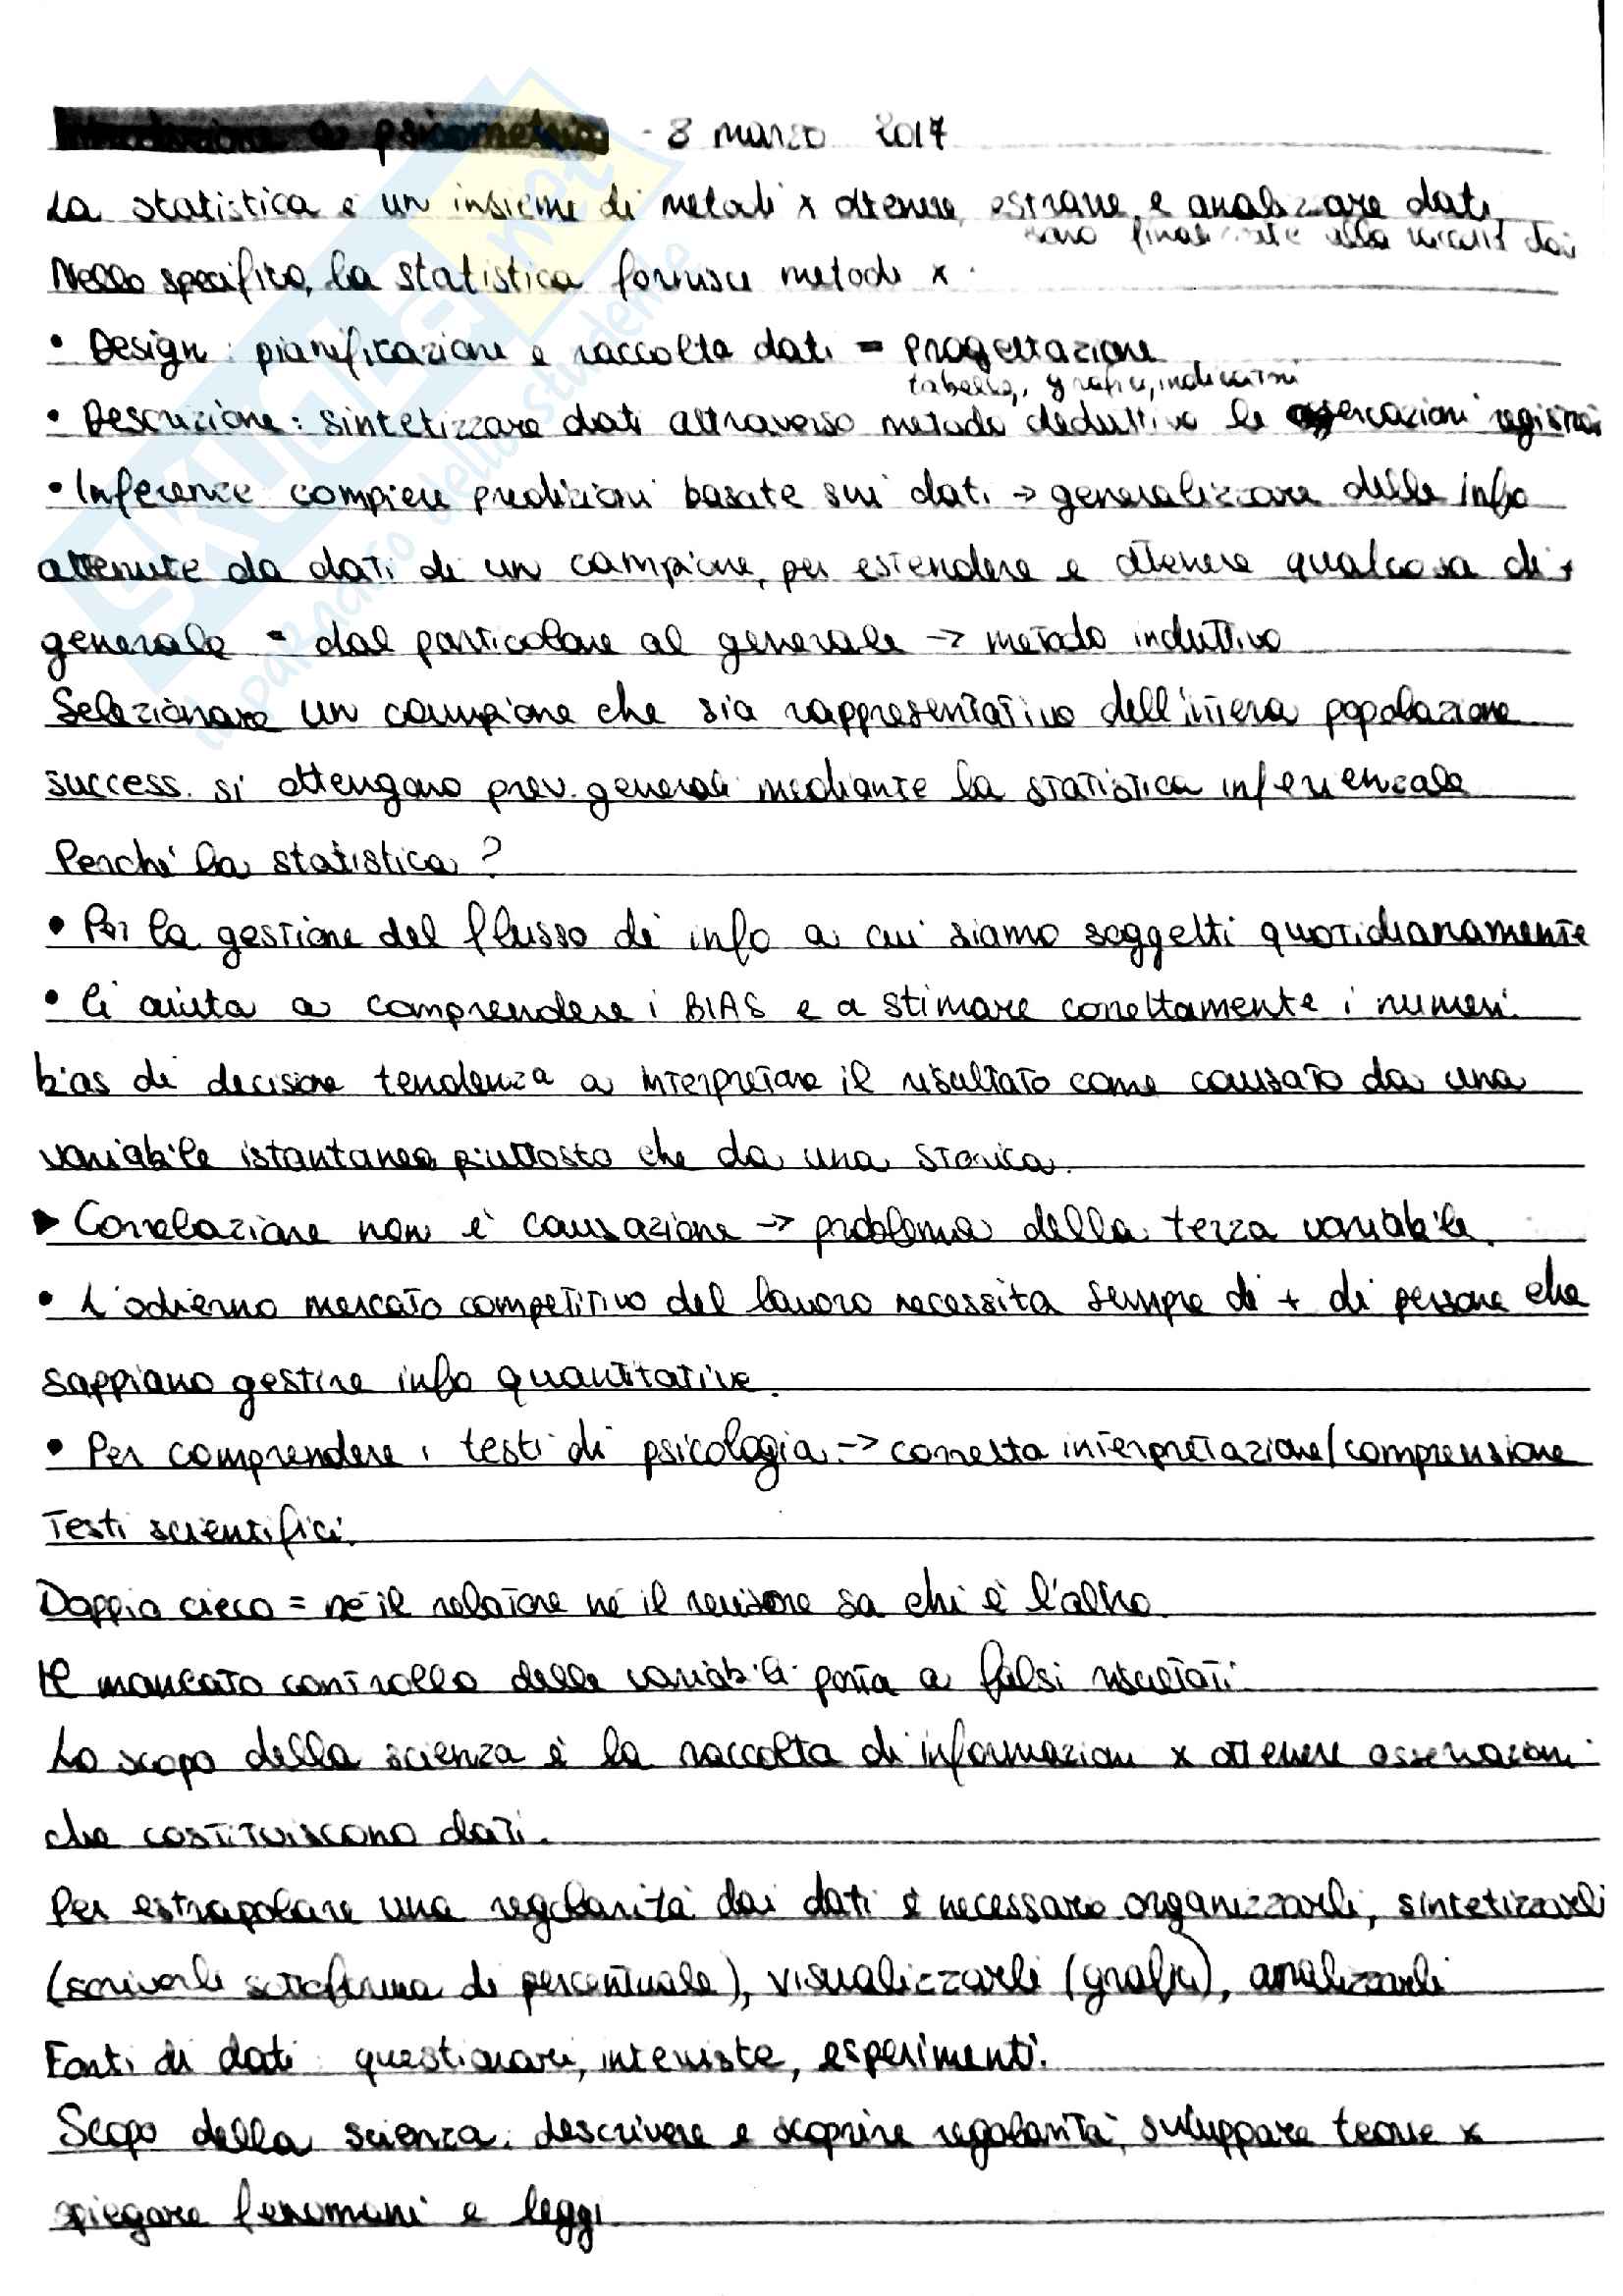 Introduzione a psicometria - 8 marzo 2017
La statistica è un insieme di metodi x ottenere, estrarre e analizzare dati,
alla dai
Nello specifico, la statistica fornisce metodi x
• Design: pianificazione e raccolta dati = progettazione
tabelle, grafici, indicatori
• Descrizione: sintetizzare dati attraverso metodo deduttivo le
• Inference compiere predizioni basate sui dati → generalizzare delle info
ottenute da dati di un campione, per estendere e ottenere qualcosa di +
generale = dal particolare al generale → metodo induttivo
Selezionare un campione che sia rappresentativo dell'intera popolazione
success. si ottengano prev. generali mediante la statistica inferenziale
Perché la statistica?
• Per la gestione del flusso di info a cui siamo soggetti quotidianamente
• Ci aiuta a comprendere i BIAS e a stimare correttamente i numeri.
bias di decisione tendenza a interpretare il risultato come causato da una
variabile istantanea piuttosto che da una storica.
► Correlazione non è causazione → problema della terza variabile.
• L'odierno mercato competitivo del lavoro necessita sempre di + di persone che
sappiano gestire info quantitative.
• Per comprendere i testi di psicologia → corretta interpretazione/comprensione
Testi scientifici.
Doppio cieco = né il relatore né il revisore sa chi è l'altro.
Il mancato controllo delle variabili porta a falsi risultati.
Lo scopo della scienza è la raccolta di informazioni x ottenere osservazioni
che costituiscono dati.
Per estrapolare una regolarità dai dati è necessario organizzarli, sintetizzarli
(scriverli sottoforma di percentuale), visualizzarli (grafici), analizzarli
Fonti di dati: questionari, interviste, esperimenti.
Scopo della scienza: descrivere e scoprire regolarità, sviluppare teorie x
spiegare fenomeni e leggi
SKUOLA.net
il paradiso dello studente